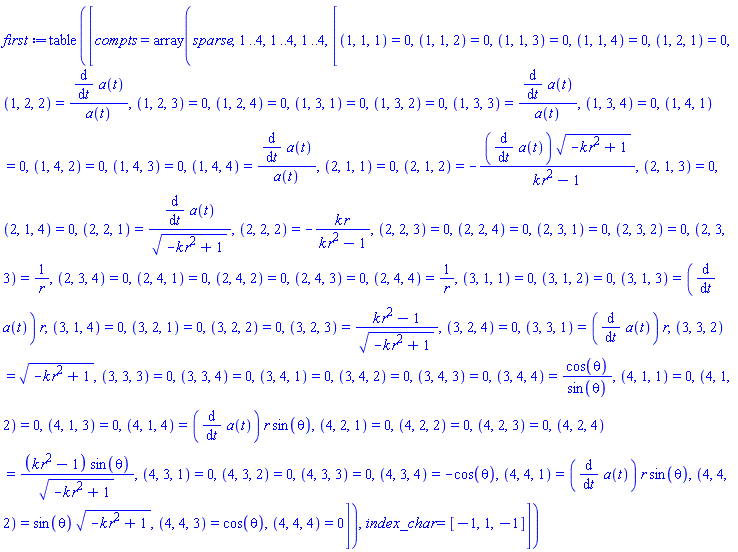 first := table([compts = array(sparse, 1 ..4, 1 ..4, 1 ..4, [(1, 1, 1) = 0, (1, 1, 2) = 0, (1, 1, 3) = 0, (1, 1, 4) = 0, (1, 2, 1) = 0,
(1, 2, 2) = (d/dt a(t))/a(t), (1, 2, 3) = 0, (1, 2, 4) = 0, (1, 3, 1) = 0, (1, 3, 2) = 0, (1, 3, 3) = (d/dt a(t))/a(t), (1, 3, 4) = 0, (1, 4, 1)
= 0, (1, 4, 2) = 0, (1, 4, 3) = 0, (1, 4, 4) = (d/dt a(t))/a(t), (2, 1, 1) = 0, (2, 1, 2) = -((d/dt a(t)) √(-k r² + 1))/(k r² - 1), (2, 1, 3) = 0,
(2, 1, 4) = 0, (2, 2, 1) = (d/dt a(t))/√(-k r² + 1), (2, 2, 2) = -(k r)/(k r² - 1), (2, 2, 3) = 0, (2, 2, 4) = 0, (2, 3, 1) = 0, (2, 3, 2) = 0, (2, 3,
3) = 1/r, (2, 3, 4) = 0, (2, 4, 1) = 0, (2, 4, 2) = 0, (2, 4, 3) = 0, (2, 4, 4) = 1/r, (3, 1, 1) = 0, (3, 1, 2) = 0, (3, 1, 3) = (d/dt
a(t)) r, (3, 1, 4) = 0, (3, 2, 1) = 0, (3, 2, 2) = 0, (3, 2, 3) = (k r² - 1)/√(-k r² + 1), (3, 2, 4) = 0, (3, 3, 1) = (d/dt a(t)) r, (3, 3, 2)
= √(-k r² + 1), (3, 3, 3) = 0, (3, 3, 4) = 0, (3, 4, 1) = 0, (3, 4, 2) = 0, (3, 4, 3) = 0, (3, 4, 4) = cos(θ)/sin(θ), (4, 1, 1) = 0, (4, 1,
2) = 0, (4, 1, 3) = 0, (4, 1, 4) = (d/dt a(t)) r sin(θ), (4, 2, 1) = 0, (4, 2, 2) = 0, (4, 2, 3) = 0, (4, 2, 4)
= ((k r² - 1) sin(θ))/√(-k r² + 1), (4, 3, 1) = 0, (4, 3, 2) = 0, (4, 3, 3) = 0, (4, 3, 4) = -cos(θ), (4, 4, 1) = (d/dt a(t)) r sin(θ), (4, 4,
2) = sin(θ) √(-k r² + 1), (4, 4, 3) = cos(θ), (4, 4, 4) = 0]), index_char = [-1, 1, -1]])